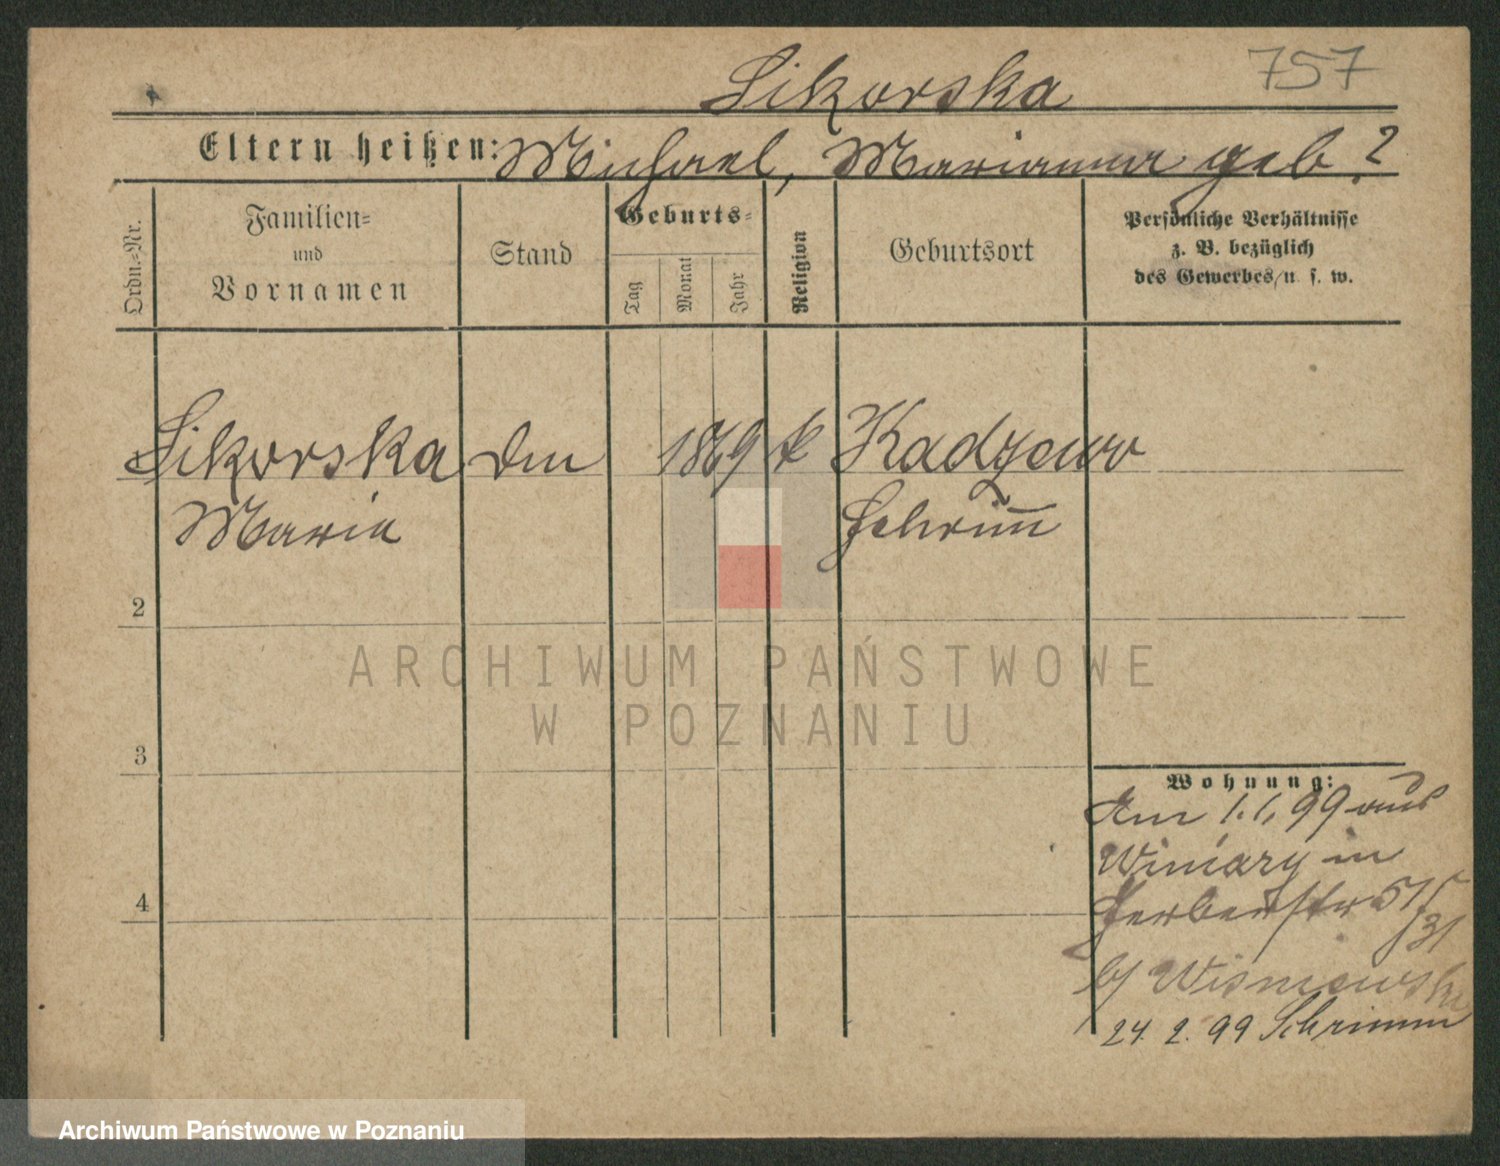 757
Sikorska
Eltern heißen: Michael, Marianna geb. ?
Ordn.=Nr.
Familien=
und
Vornamen
Stand
Geburts=
Tag
Monat
Jahr
Religion
Geburtsort
Persönliche Verhältnisse
z. B. bezüglich
des Gewerbes u. s. w.
Sikorska
1869
k
Kadzewo
Maria
Schrimm
2
3
4
Wohnung:
Am 1.1.99 aus
Winiary in
Gerberstr 5/
31
b/ Wisniewska
24. 2. 99 Schrimm
ARCHIWUM PAŃSTWOWE
W POZNANIU
Archiwum Państwowe w Poznaniu